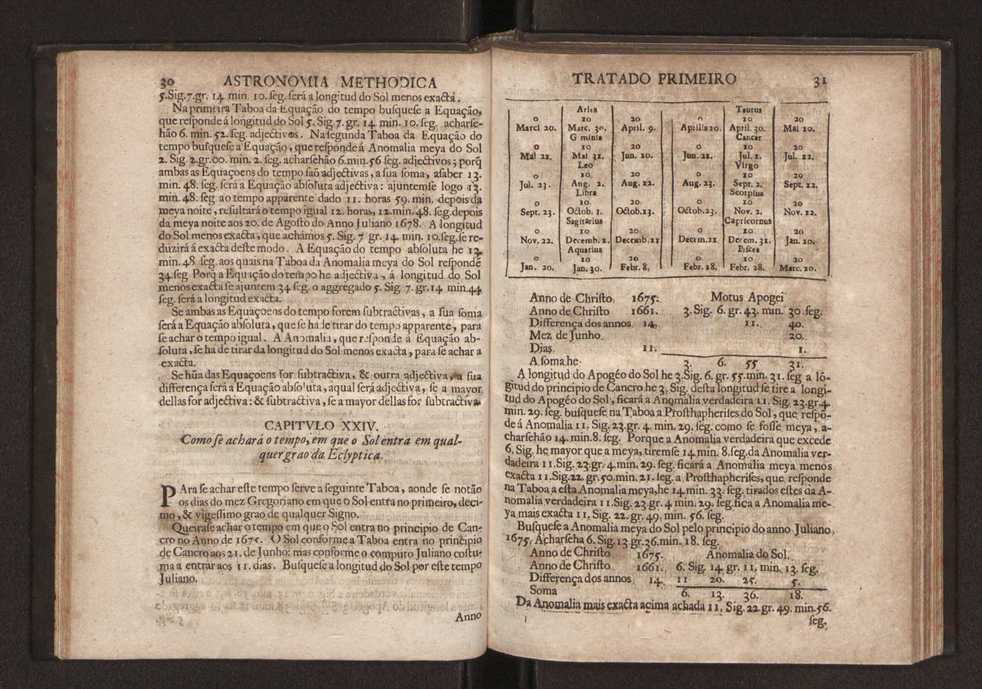 30 ASTRONOMIA METHODICA
5.Sig.7.gr. 14. min. 10. seg. será a longitud do Sol menos exacta.
Na primeira Taboa da Equação do tempo busquese a Equação,
que responde á longitud do Sol 5. Sig. 7. gr. 14. min. 10. seg. acharse-
hão 6. min. 52. seg. adjectivos. Na segunda Taboa da Equação do
tempo busquese a Equação, que responde á Anomalia meya do Sol
2. Sig. 2.gr.00. min. 2. seg. acharsehão 6.min.56 seg. adjectivos; porq̃
ambas as Equaçoens do tempo saõ adjectivas, a sua soma, asaber 13.
min. 48. seg. será a Equação absoluta adjectiva: ajuntemse logo 13.
min. 48. seg ao tempo apparente dado 11. horas 59. min. depois da
meya noite, resultará o tempo igual 12. horas, 12.min. 48. seg. depois
da meya noite aos 20. de Agosto do Anno Juliano 1678. A longitud
do Sol menos exacta, que achámos 5. Sig. 7 gr. 14. min. 10.seg. se re-
duzirá á exacta deste modo. A Equação do tempo absoluta he 13.
min. 48. seg. aos quais na Taboa da Anomalia meya do Sol responde
34.seg Porq̃ a Equação do tempo he adjectiva, á longitud do Sol
menos exacta se ajuntem 34 seg. o aggregado 5. Sig. 7. gr.14 min.44
seg. será a longitud exacta.
Se ambas as Equaçoens do tempo forem subtractivas, a sua soma
será a Equação absoluta, que se ha de tirar do tempo apparente, para
se achar o tempo igual. A Anomalia, que responde á Equação ab-
soluta, se ha de tirar da longitud do Sol menos exacta, para se achar a
exacta.
Se hũa das Equaçoens for subtractiva, & outra adjectiva, a sua
differença será a Equação absoluta, a qual será adjectiva, se a mayor
dellas for adjectiva: & subtractiva, se a mayor dellas for subtractiva.
CAPITVLO XXIV.
Como se achará o tempo, em que o Sol entra em qual-
quer grao da Eclyptica.
PAra se achar este tempo serve a seguinte Taboa, aonde se notão
os dias do mez Gregoriano em que o Sol entra no primeiro, deci-
mo, & vigesimo grao de qualquer Signo.
Queirase achar o tempo em que o Sol entra no principio de Can-
cro no Anno de 1675. O Sol conforme a Taboa entra no principio
de Cancro aos 21. de Junho: mas conforme o computo Juliano costu-
ma a entrar aos 11. dias. Busquese a longitud do Sol por este tempo
Juliano.
Anno
TRATADO PRIMEIRO 31
Aries Taurus
0 10 20 0 10 20
Marci 20. Marc. 30. April. 9. Aprilis 20. April. 30. Mai 10.
Geminis Cancer
0 10 20 0 10 20
Mai 21. Mai 31. Jun. 10. Jun. 21. Jul. 1. Jul. 12.
Leo Virgo
0 10. 20 0 10 20
Jul. 23. Aug. 2. Aug. 12. Aug. 23. Sept. 2. Sept. 12.
Libra Scorpius
0 10 20 0 10 20
Sept. 23. Octob. 1. Octob.13. Octob.23. Nov. 2. Nov. 12.
Sagitarius Capricornus
0 10 20 0 10 20
Nov. 22. Decemb. 2. Decemb.12 Decem.21 Decem. 31. Jan. 10.
Aquarius Pisces
0 10 20 0 10 20
Jan. 20. Jan. 30. Febr. 8. Febr. 18. Febr. 28. Marc. 10.
Anno de Christo 1675. Motus Apogei
Anno de Christo 1661. 3. Sig. 6. gr. 43. min. 30. seg.
Differença dos annos 14. 11. 40.
Mez de Junho 20.
Dias 11. 1.
A soma he 3. 6. 55 31.
A longitud do Apogéo do Sol he 3.Sig. 6. gr. 55.min. 31. seg a lõ-
gitud do principio de Cancro he 3. Sig. desta longitud se tire a longi-
tud do Apogéo do Sol, ficará a Anomalia verdadeira 11. Sig. 23.gr.4.
min. 29. seg. busquese na Taboa a Prosthapherises do Sol, que respõ-
de á Anomalia 11. Sig. 23.gr. 4. min. 29. seg. como se fosse meya, a-
charsehão 14. min.8. seg. Porque a Anomalia verdadeira que excede
6. Sig. he mayor que a meya, tiremse 14.min. 8.seg.da Anomalia ver-
dadeira 11.Sig. 23.gr. 4.min. 29. seg. ficará a Anomalia meya menos
exacta 11.Sig.22.gr.50.min.21. seg. a Prosthapherises, que responde
na Taboa a esta Anomalia meya, he 14.min. 33. seg. tirados estes da A-
nomalia verdadeira 11.Sig. 23.gr.4. min. 29. seg. fica a Anomalia me-
ya mais exacta 11. Sig. 22. gr. 49. min. 56. seg.
Busquese a Anomalia meya do Sol pelo principio do anno Juliano
1675. Acharseha 6. Sig. 13 gr.36.min. 18. seg.
Anno de Christo 1675. Anomalia do Sol.
Anno de Christo 1661. 6. Sig. 14. gr. 11. min. 13. seg.
Differença dos annos 14. 11 20. 25. 5.
Soma 6. 13. 36. 18.
Da Anomalia mais exacta acima achada 11. Sig. 22 gr. 49. min.56.
seg.